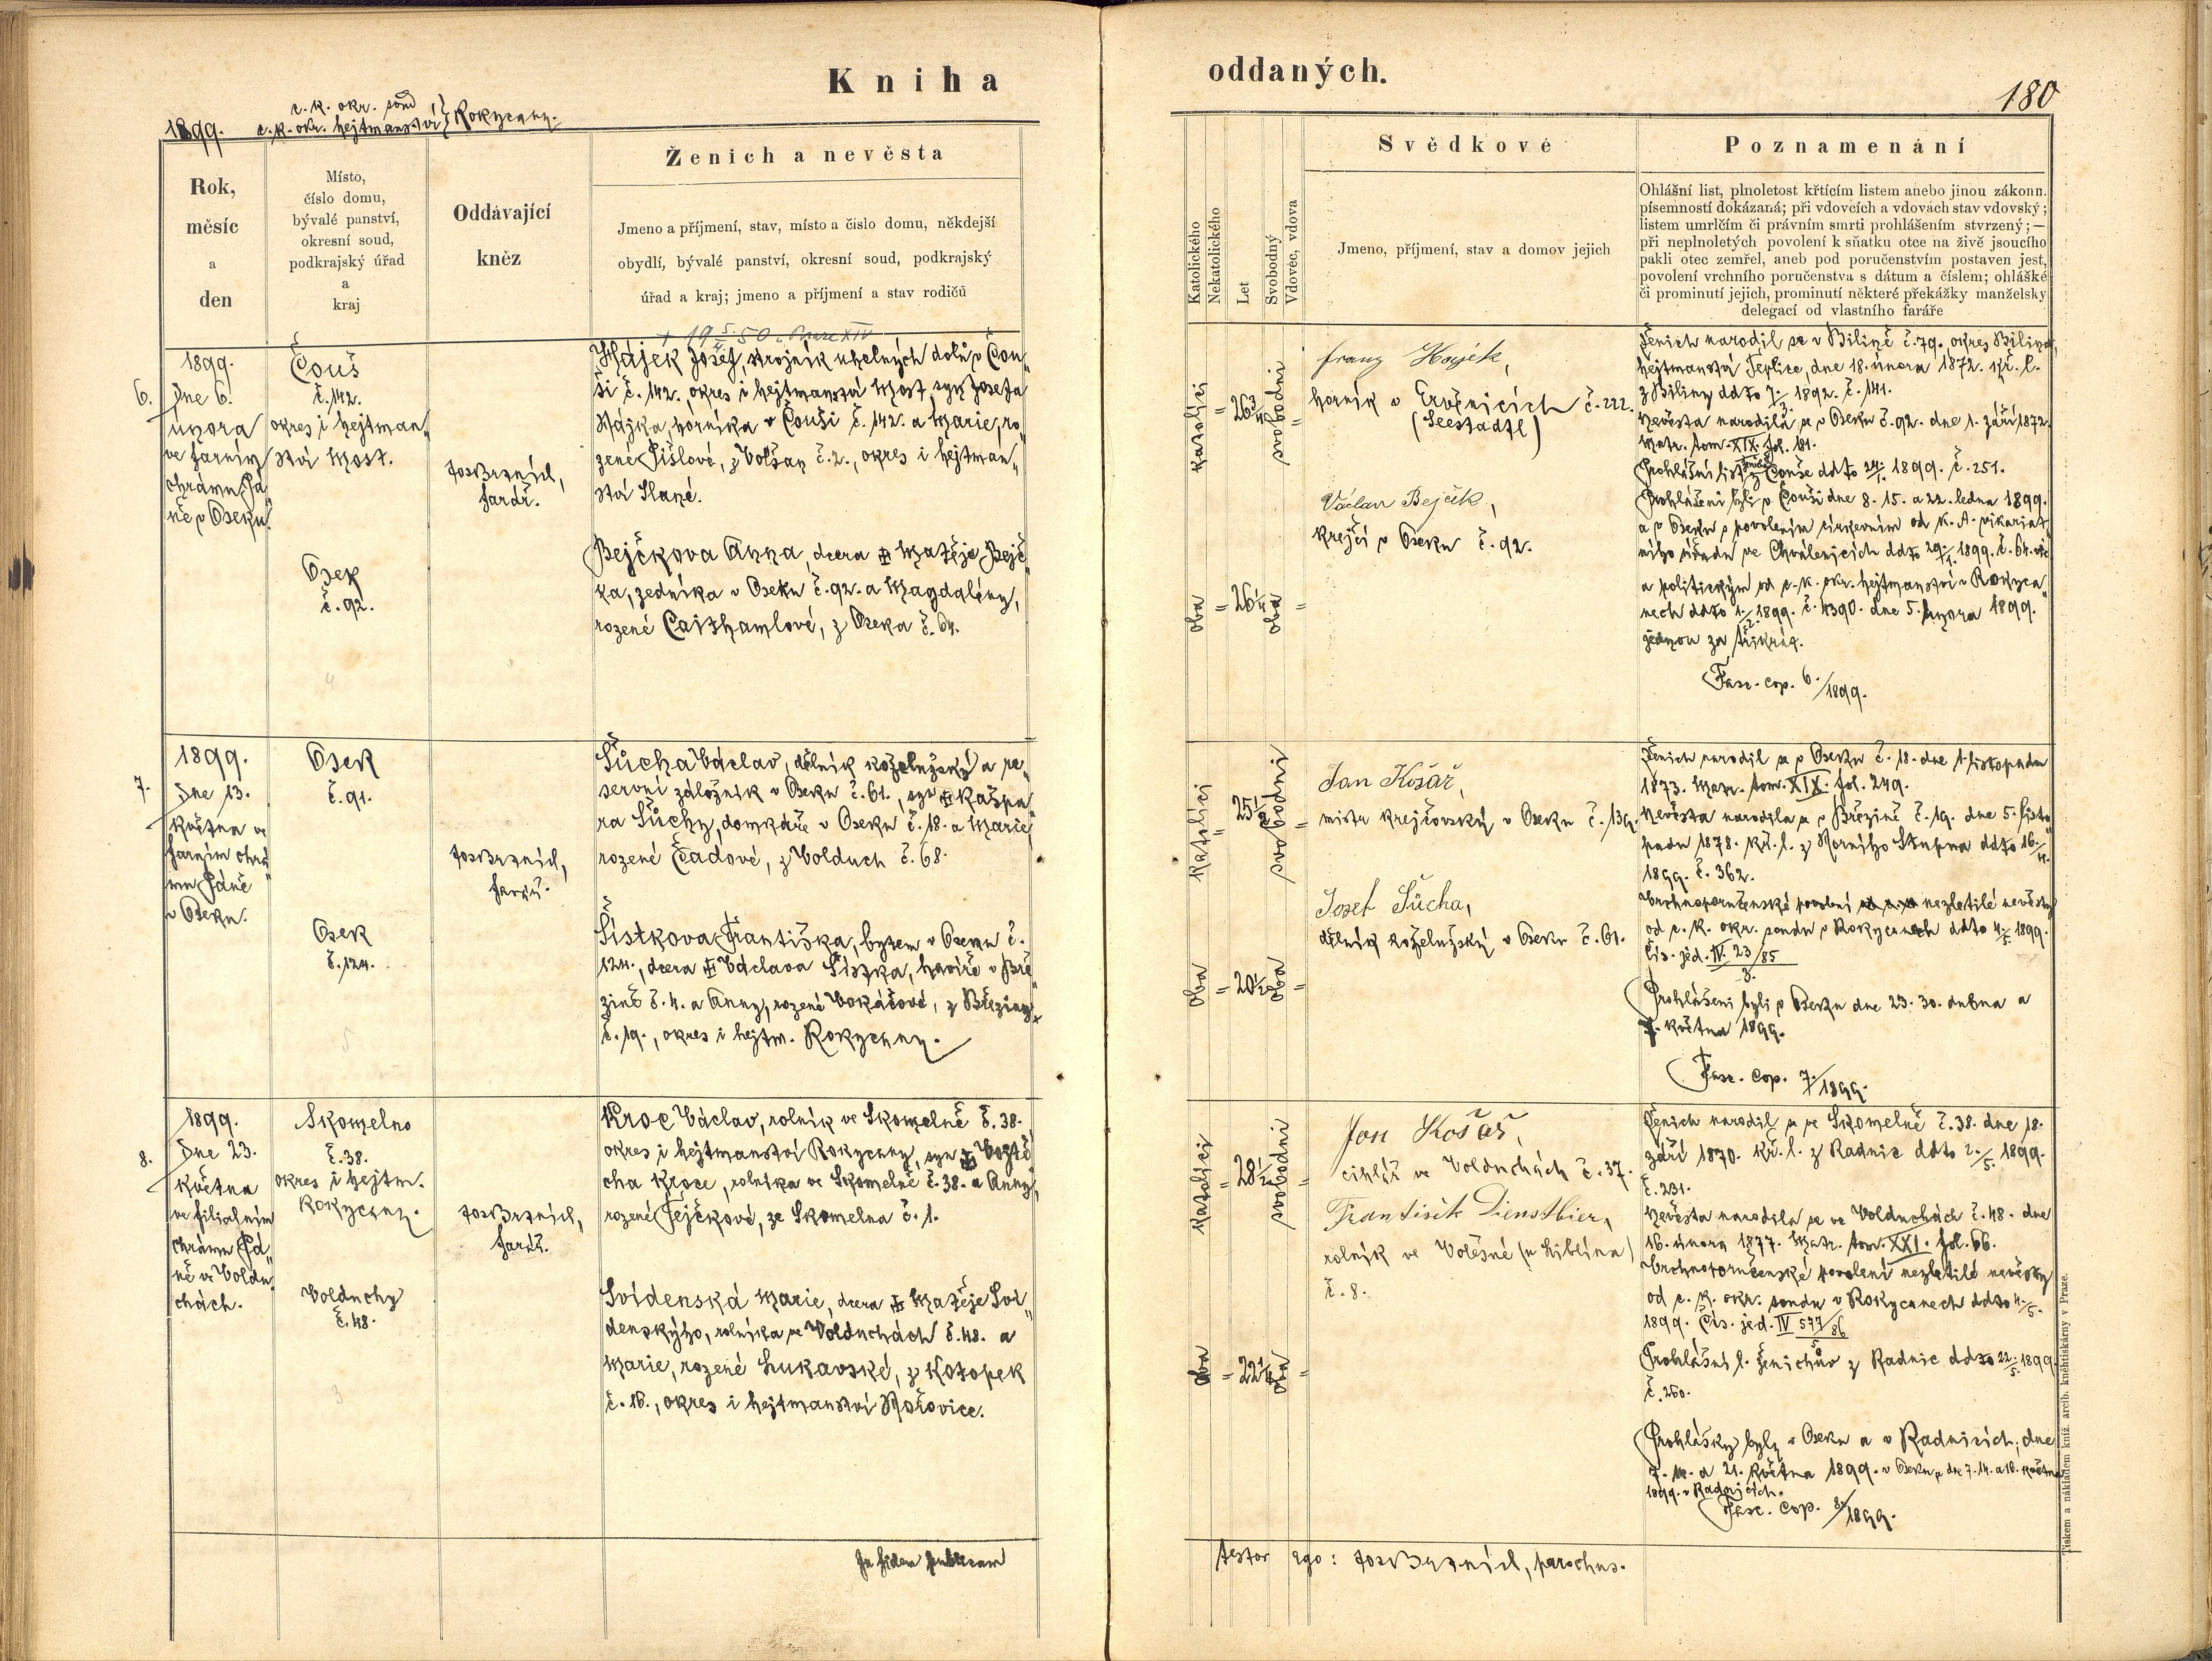 Kniha
oddaných.
180
c. k. okr. soud
1899. c. k. okr. hejtmanství } Rokycany.
Rok,
měsíc
a
den
Místo,
číslo domu,
bývalé panství,
okresní soud,
podkrajský úřad
a
kraj
Oddávající
kněz
Ženich a nevěsta
Jmeno a příjmení, stav, místo a číslo domu, někdejší
obydlí, bývalé panství, okresní soud, podkrajský
úřad a kraj; jmeno a příjmení a stav rodičů
Katolického
Nekatolického
Let
Svobodný
Vdovec, vdova
Svědkové
Jmeno, příjmení, stav a domov jejich
Poznamenání
Ohlášní list, plnoletost křtícím listem anebo jinou zákonn.
písemností dokázaná; při vdovcích a vdovách stav vdovský;
listem umrlčím či právním smrti prohlášením stvrzený;—
při neplnoletých povolení k sňatku otce na živě jsoucího
pakli otec zemřel, aneb pod poručenstvím postaven jest,
povolení vrchního poručenstva s dátum a číslem; ohlášké
či prominutí jejich, prominutí některé překážky manželsky
delegací od vlastního faráře
6.
1899.
Dne 6.
února
ve farním
chrámu Pá„
ně v Oseku.
Čouš
č. 142.
okres i hejtman„
ství Most.
Osek
č. 92.
farář.
Hájek Josef, strojník uhelných dolů v Čou„
ši č. 142. okres i hejtmanství Most, syn Josefa
Hájka, horníka v Čouši č. 142. a Marie, ro„
zené Šišlové, z Volšan č. 2., okres i hejtman„
ství Slané.
Bejčkova Anna, dcera Matěje Bejč„
ka, zedníka v Oseku č. 92. a Magdalény,
rozené Cajthamlové, z Oseka č. 64.
katolíci = 26 3/4 svobodni =
oba = 26 oba =
Franz Hayek,
horník v Ervěnicích č. 222.
(Seestadtl)
Václav Bejček,
krejčí v Oseku č. 92.
Ženich narodil se v Bílině č. 79. okres Bílina,
hejtmanství Teplice, dne 18. února 1872. kř. l.
z Bíliny ddto 7/ 1892. č. 141.
Nevěsta narodila se v Oseku č. 92. dne 1. září 1872.
Matr. tom. XIX. fol. 181.
Prohlášní list z Čouše ddto 24/1. 1899. č. 251.
Prohlášeni byli v Čouši dne 8. 15. a 22. ledna 1899.
a v Oseku s povolením církevním od k. A. vikariát„
ního úřadu ve Chválenicích ddto 29/1. 1899. č. 64.
a politickým od c. k. okr. hejtmanství v Rokyca„
nech ddto 1/2. 1899. č. 4390. dne 5. února 1899.
jednou za třikrát.
Fasc. cop. 6./1899.
7.
1899.
Dne 13.
května ve
farním chrá„
mu Páně
v Oseku.
Osek
č. 91.
Osek
č. 124.
farář.
Šůcha Václav, dělník koželužský a re„
servní záložník v Oseku č. 61., syn Kašpa„
ra Šůchy, domkáře v Oseku č. 18. a Marie,
rozené Čadové, z Volduch č. 68.
Šístkova Františka, bytem v Oseku č.
124., dcera Václava Šístka, havíře v Bře„
zině č. 4. a Anny, rozené Vokáčové, z Březiny
č. 19., okres i hejtm. Rokycany.
katolíci = 25 1/2 svobodni =
oba = 20 1/2 oba =
Jan Košař,
mistr krejčovský v Oseku č. 139.
Josef Šůcha,
dělník koželužský v Oseku č. 61.
Ženich narodil se v Oseku č. 18. dne 1. listopadu
1873. Matr. tom. XIX. fol. 249.
Nevěsta narodila se v Březině č. 19. dne 5. listo„
padu 1878. kř. l. z Horního Stupna ddto 16/4.
1899. č. 362.
Vrchnoporučenské povolení nezletilé nevěsty
od c. k. okr. soudu v Rokycanech ddto 4/5. 1899.
čís. jed. IV. 23/85
3.
Prohlášeni byli v Oseku dne 23. 30. dubna a
7. května 1899.
Fasc. cop. 7./1899.
8.
1899.
Dne 23.
května
ve filialním
chrámu Pá„
ně ve Voldu„
chách.
Skomelno
č. 38.
okres i hejtm.
Rokycany.
Volduchy
č. 48.
farář.
Kroc Václav, rolník ve Skomelně č. 38.
okres i hejtmanství Rokycany, syn Vojtě„
cha Kroce, rolníka ve Skomelně č. 38. a Anny,
rozené Fejčkové, ze Skomelna č. 1.
Svídenská Marie, dcera Matěje Sví„
denskýho, rolníka ve Volduchách č. 48. a
Marie, rozené Lukavské, z Kotopek
č. 16., okres i hejtmanství Hořovice.
katolíci = 28 1/2 svobodni =
oba = 22 1/4 oba =
Jan Košař,
cihlář ve Volduchách č. 37.
František Dienstbier,
rolník ve Volešné (u Liblína)
č. 8.
Ženich narodil se ve Skomelně č. 38. dne 18.
září 1870. kř. l. z Radnic ddto 2./5. 1899.
č. 231.
Nevěsta narodila se ve Volduchách č. 48. dne
16. února 1877. Matr. tom. XXI. fol. 66.
Vrchnoporučenské povolení nezletilé nevěsty
od c. k. okr. soudu v Rokycanech ddto 4/5.
1899. čís. jed. IV 577/86
5
Prohlášní l. ženichův z Radnic ddto 22/5. 1899.
č. 260.
Prohlášky byly v Oseku a v Radnicích, dne
7. 14. a 21. května 1899. v Oseku a dne 7. 14. a 16. května
1899. v Radnicích.
Fasc. cop. 8./1899.
In fidem publicam
testor ego: parochus.
Tiskem a nákladem kníž. arcib. kněhtiskárny v Praze.